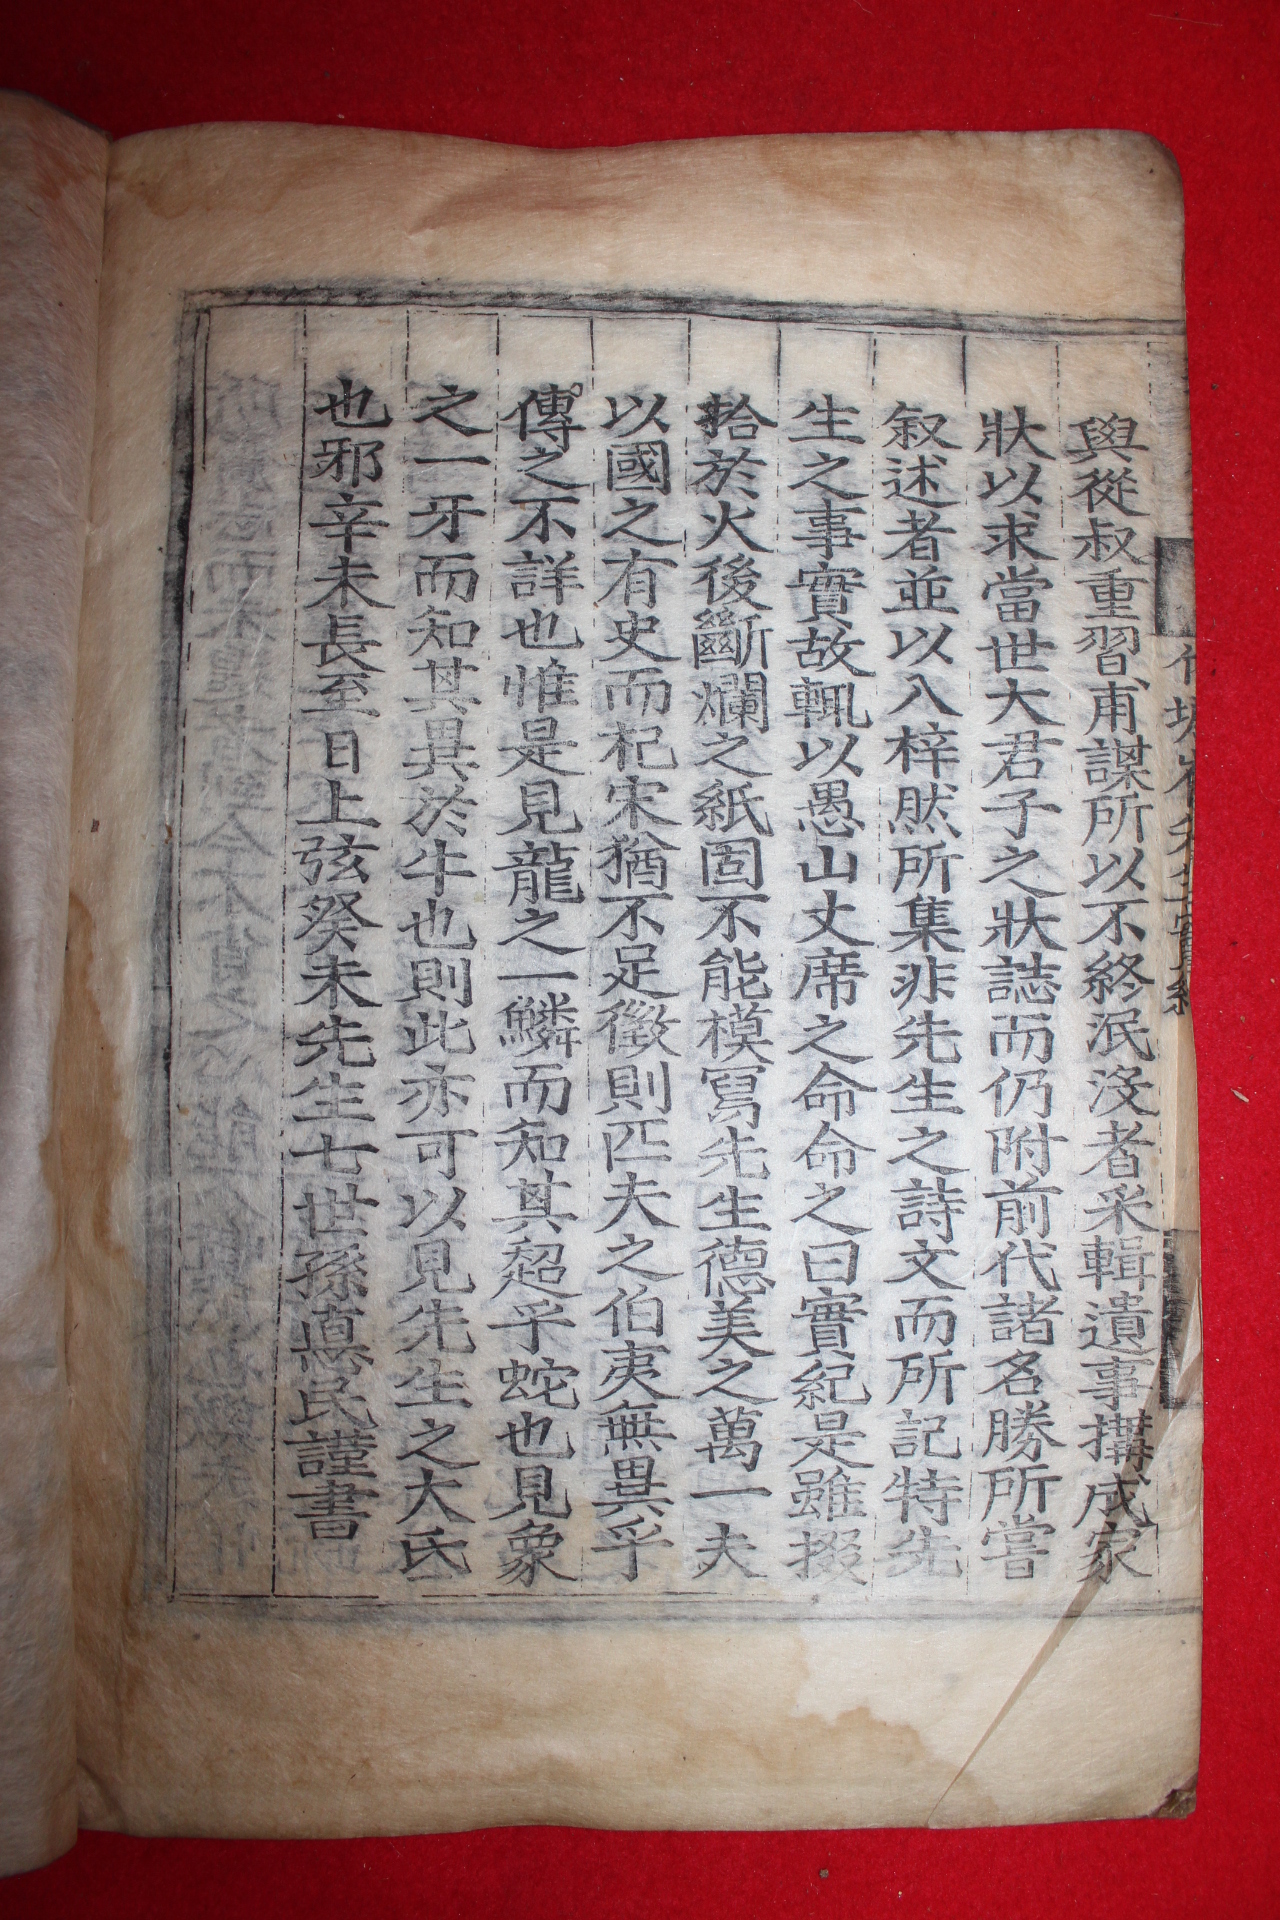 與從叔重習甫謀所以不終泯沒者采輯遺事撰成家
狀以求當世大君子之狀誌而仍附前代諸名勝所嘗
叙述者並以入梓然所集非先生之詩文而所記特先
生之事實故輒以愚山丈席之命命之曰實紀是雖掇
拾於火後斷爛之紙固不能模寫先生德美之萬一夫
以國之有史而杞宋猶不足徵則匹夫之伯夷無異乎
傳之不詳也惟是見龍之一鱗而知其超乎蛇也見象
之一牙而知其異於牛也則此亦可以見先生之大氐
也邪辛未長至日上弦癸未先生七世孫真民謹書